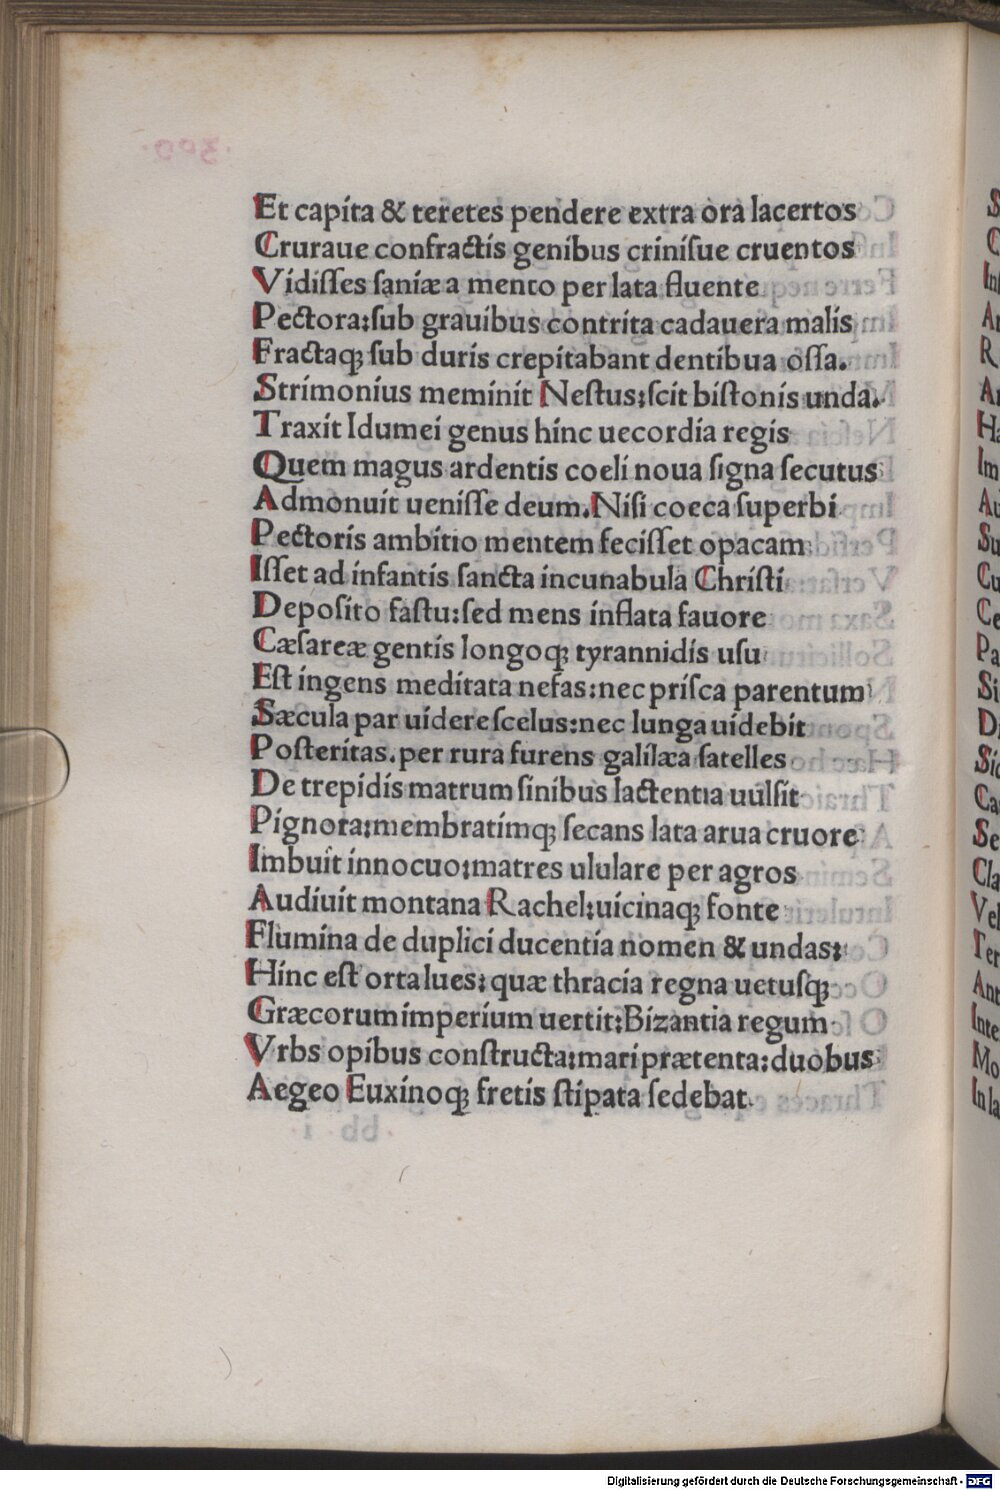 Et capita & teretes pendere extra ora lacertos
Cruraue confractis genibus criniſue cruentos
Vidiſſes ſaniæ a mento per lata fluente
Pectora:ſub grauibus contrita cadauera malis
Fractaqꝫ ſub duris crepitabant dentibua oſſa.
Strimonius meminit Neſtus:ſcit biſtonis unda.
Traxit Idumei genus hinc uecordia regis
Quem magus ardentis coeli noua ſigna ſecutus
Admonuit ueniſſe deum.Niſi coeca ſuperbi
Pectoris ambitio mentem feciſſet opacam
Iſſet ad infantis ſancta incunabula Chriſti
Depoſito faſtu:ſed mens inflata fauore
Cæſareæ gentis longoqꝫ tyrannidis uſu
Eſt ingens meditata nefas:nec priſca parentum
Sæcula par uidere ſcelus:nec lunga uidebit
Poſteritas.per rura furens galilæa ſatelles
De trepidis matrum ſinibus lactentia uulſit
Pignora:membratimqꝫ ſecans lata arua cruore
Imbuit innocuo:matres ululare per agros
Audiuit montana Rachel:uicinaqꝫ fonte
Flumina de duplici ducentia nomen & undas:
Hinc eſt orta lues: quæ thracia regna uetuſqꝫ
Græcorum imperium uertit:Bizantia regum
Vrbs opibus conſtructa:mari prætenta:duobus
Aegeo Euxinoqꝫ fretis ſtipata ſedebat.
Digitalisierung gefördert durch die Deutsche Forschungsgemeinschaft - DFG